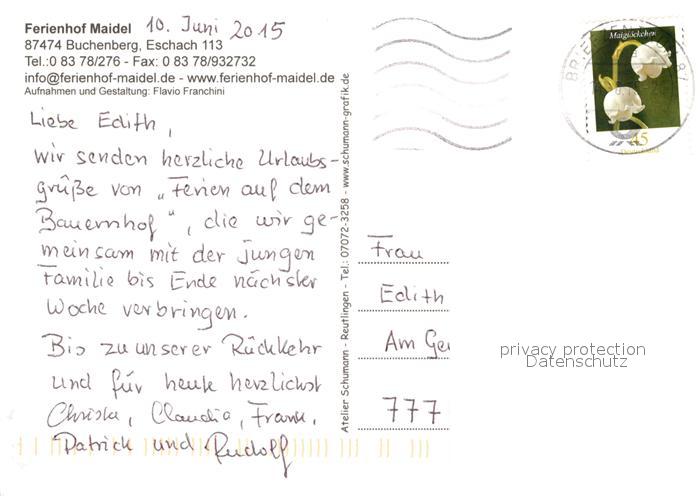 Ferienhof Maidel 10. Juni 2015
87474 Buchenberg, Eschach 113
Tel.:0 83 78/276 - Fax: 0 83 78/932732
info@ferienhof-maidel.de - www.ferienhof-maidel.de
Aufnahmen und Gestaltung: Flavio Franchini
Liebe Edith,
wir senden herzliche Urlaubs-
grüße von „Ferien auf dem
Bauernhof“, die wir ge-
meinsam mit der jungen
Familie bis Ende nächster
Woche verbringen.
Bis zu unserer Rückkehr
und für heute herzlichst
Christa, Claudia, Frank,
Patrick und Rudolf
Atelier Schumann - Reutlingen - Tel.: 07072-3258 - www.schumann-grafik.de
Maiglöckchen
45
Deutschland
Frau
Edith
Am
777
privacy protection
Datenschutz